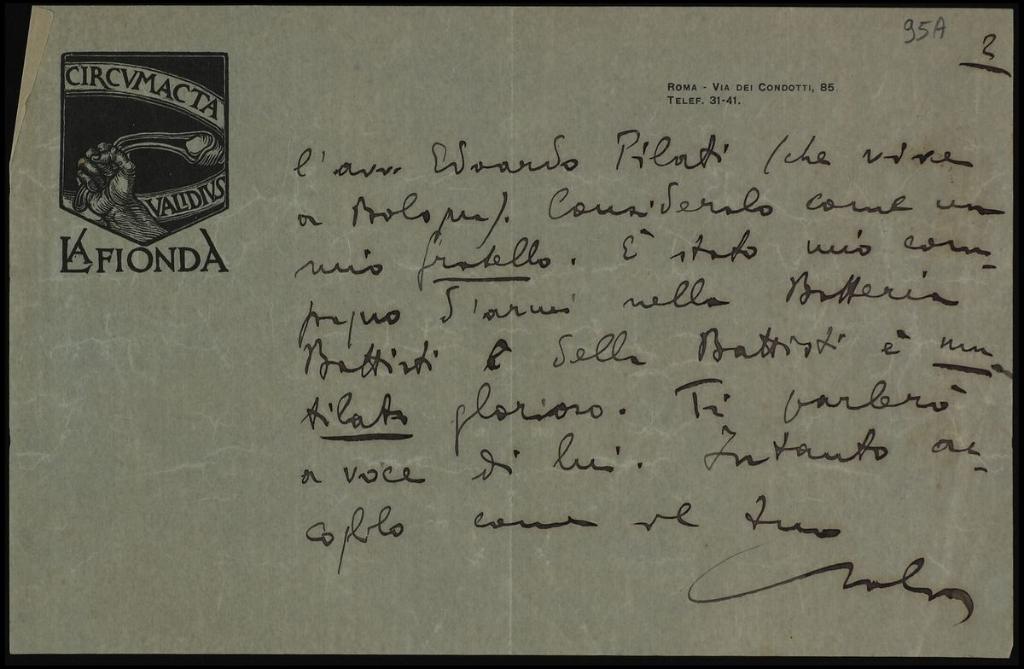 95A
2
CIRCVMACTA
VALIDIVS
LA FIONDA
ROMA - VIA DEI CONDOTTI, 85.
TELEF. 31-41.
l'avv. Edoardo Pilati (che vive
a Bologna). Consideralo come un
mio fratello. È stato mio com-
pagno d'armi nella Batteria
Battisti e della Battisti è mu-
tilato glorioso. Ti parlerò
a voce di lui. Intanto ac-
coglilo come il tuo